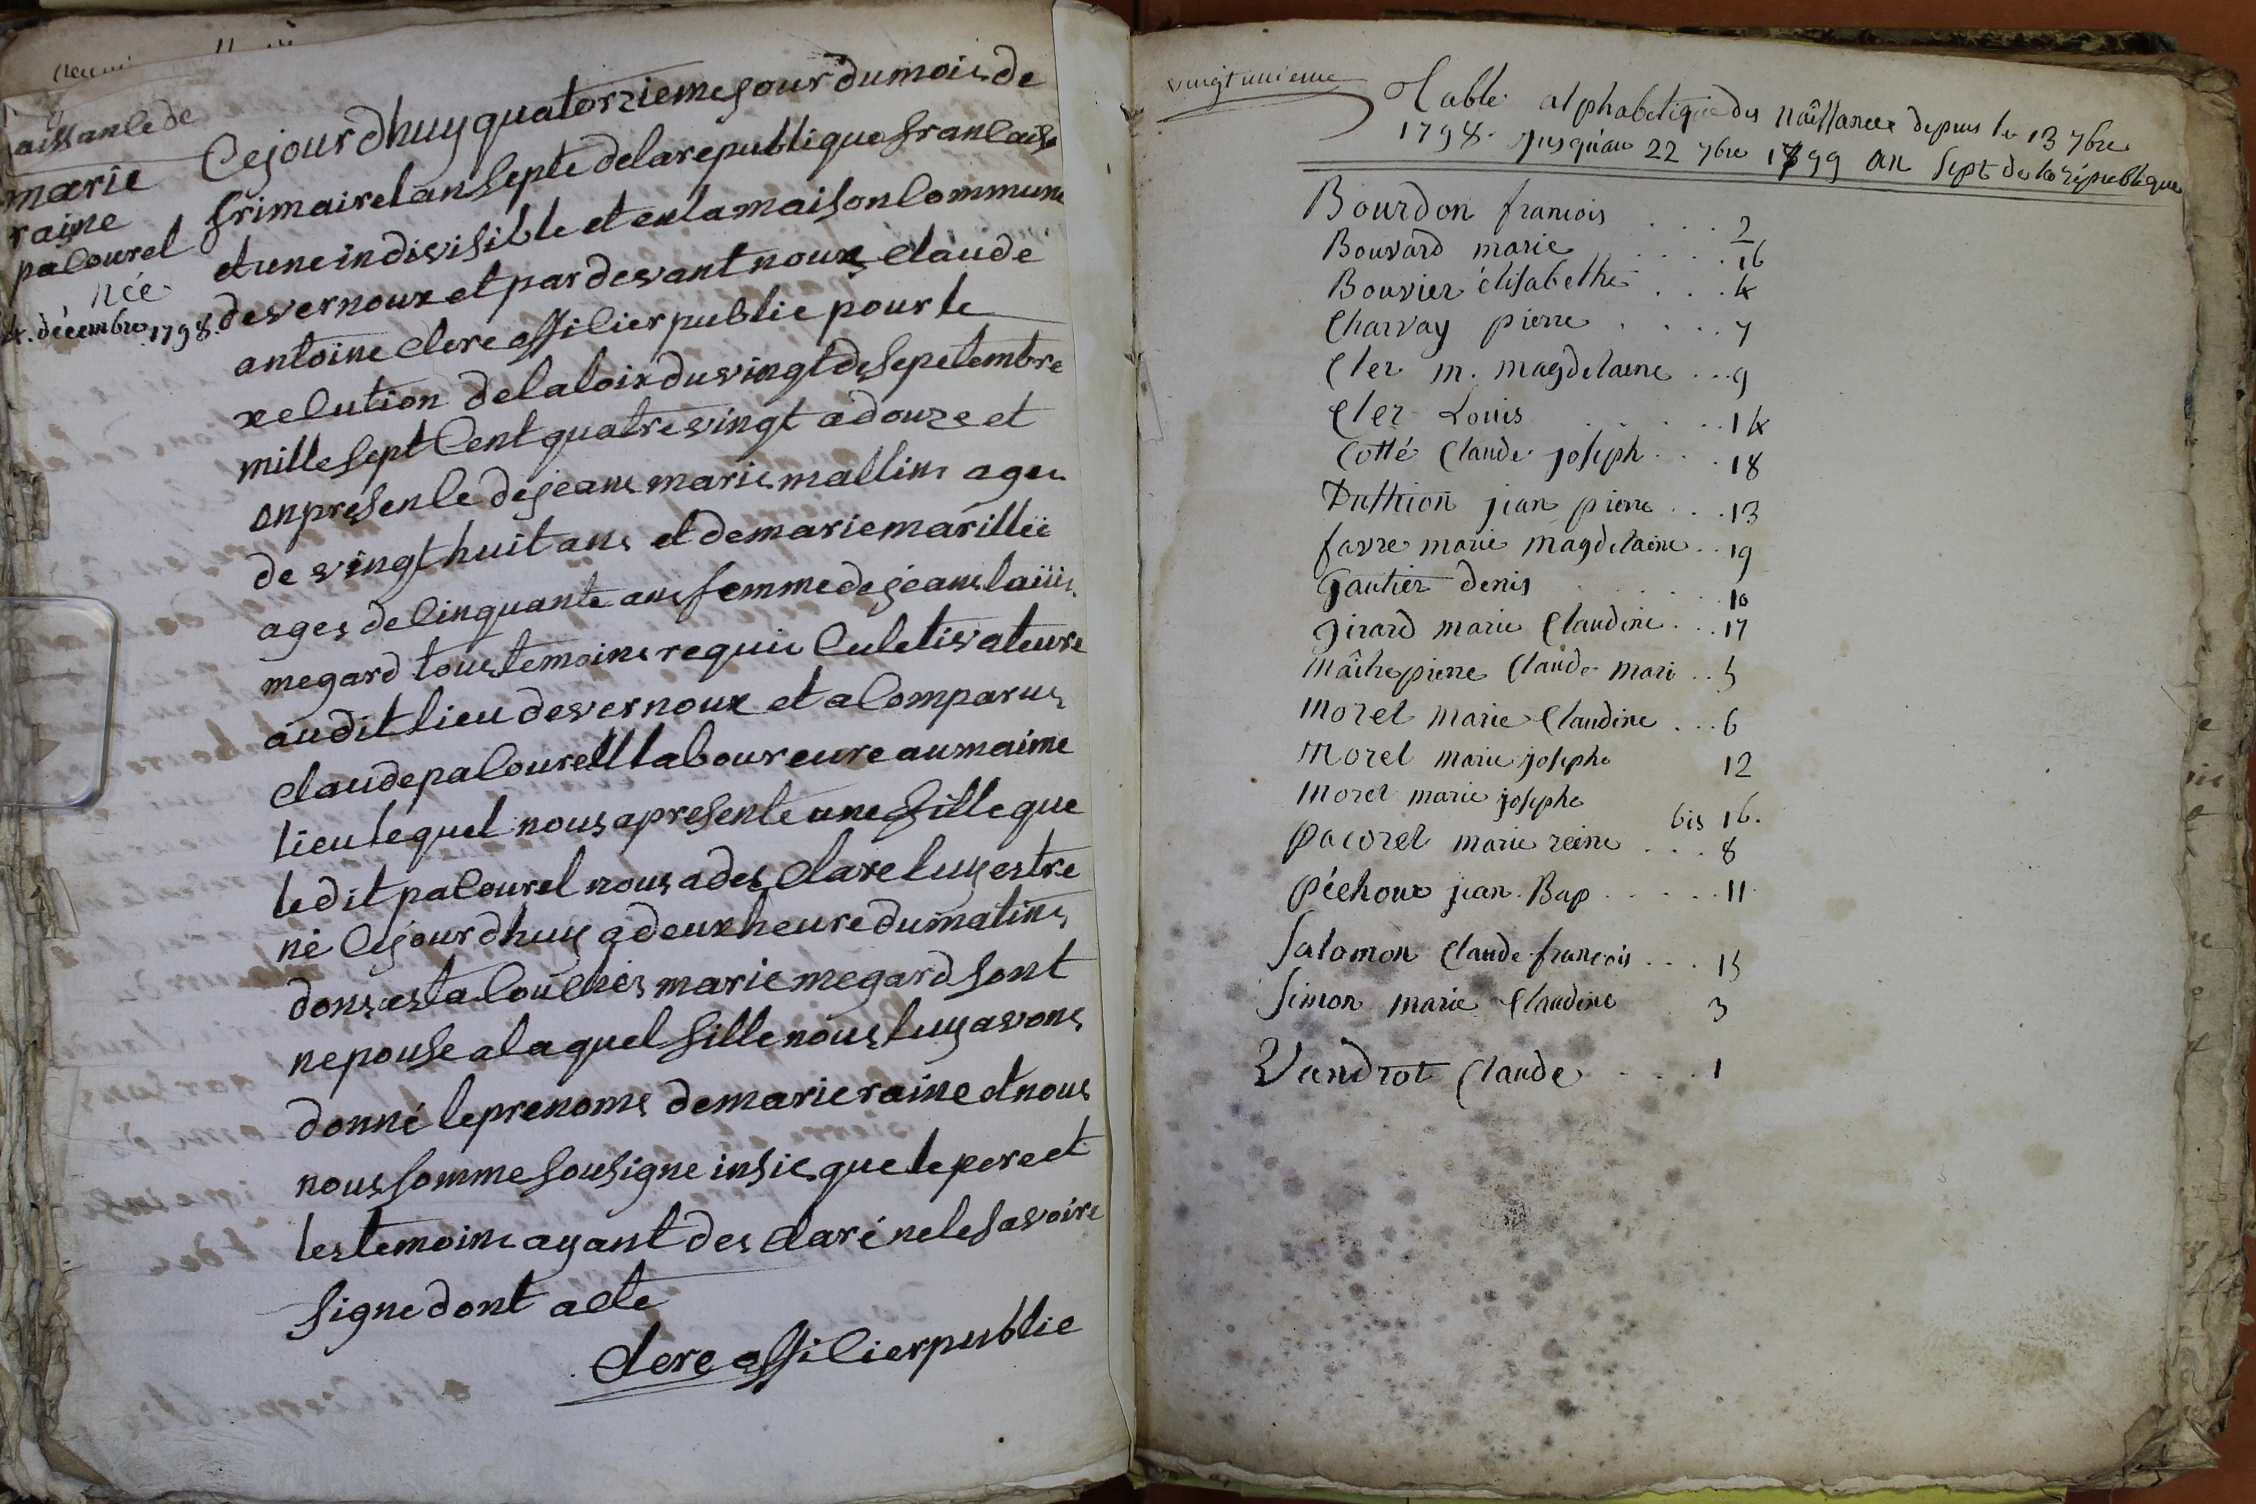 aissance de
marie
raine
pacourel
née
4. décembre 1798.
Ce jourdhuy quatorzieme jour du mois de
frimaire lan septe de la republique francaise
et une indivisible et en la maison commune
de vernoux et par devant nous claude
antoine clerc officier public pour le
xecution de la loix du vingt de sepetembre
mille sept cent quatre vingt adouze et
en presence de jeans maries mallins ages
de vingt huit ans et de marie marillié
ages de cinquante ans femme de jeans
megard tous temoins requis culetivateure
audit lieu de vernoux et a comparus
claude pacourell laboureure au maime
lieu lequel nous apresente une fille que
le dit pacourel nous a des clare luy estre
né ce jourdhuy a deux heure du matins
dons est acouchés marie megard sont
nepouse a laquel fille nous luy avons
donné le prenoms de marie raine et nous
nous somme sousigne insis que le pere et
les temoins ayant des claré ne le savoire
signe dont acte
clerc officier public
vingt unieme
Table alphabetique des naîssances depuis le 13 7bre
1798. jusqu'au 22 7bre 1799 an sept de la république
Bourdon francois . . . . 2
Bouvard marie . . . . . 16
Bouvier élisabethe . . . 4
Charvay pierre . . . . . 7
Cler m. magdelaine . . . 9
Cler Louis . . . . . . 14
Cotté Claude joseph . . . 18
Duthion jean pierre . . . 13
favre marie magdelaine . . 19
Gautier denis . . . . . 10
Girard marie Claudine . . . 17
Maîtrepierre Claude mari . . 5
Morel marie Claudine . . . 6
Morel marie josephe 12
Morel marie josephe bis 16.
Pacorel marie reine . . . . 8
Péchoux jean Bap . . . . . 11.
Salomon Claude francois . . . 15
Simon marie Claudine 3
Vandrot Claude . . . . 1